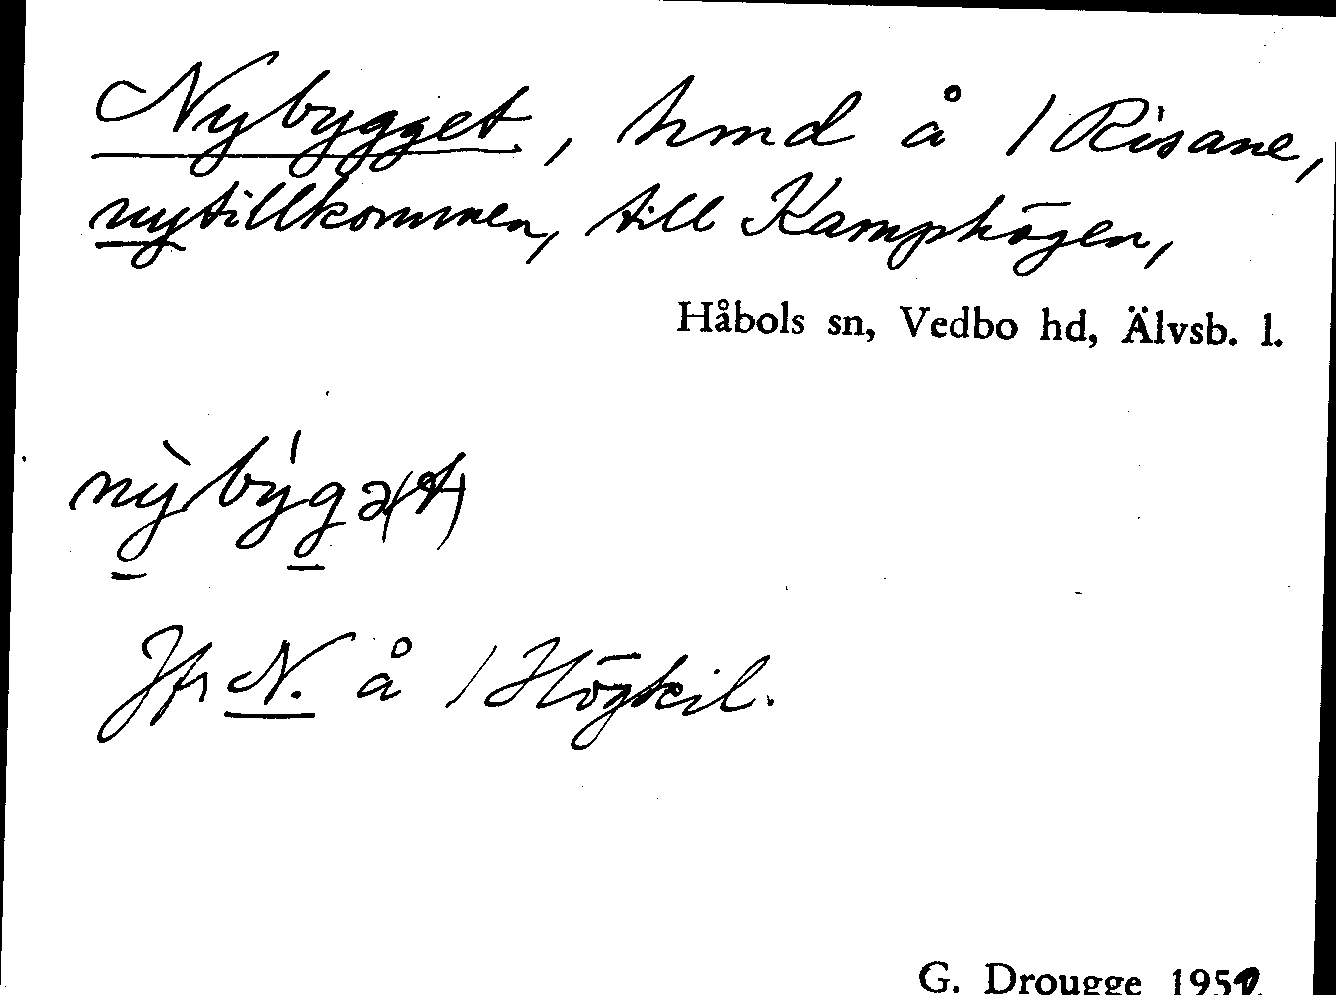 Nybygget, hmd å 1 Risane,
nytillkommen, till Kamphögen,
Håbols sn, Vedbo hd, Älvsb. l.
nỳbýgə(t)
Jfr N. å 1 Högkil.
G. Drougge